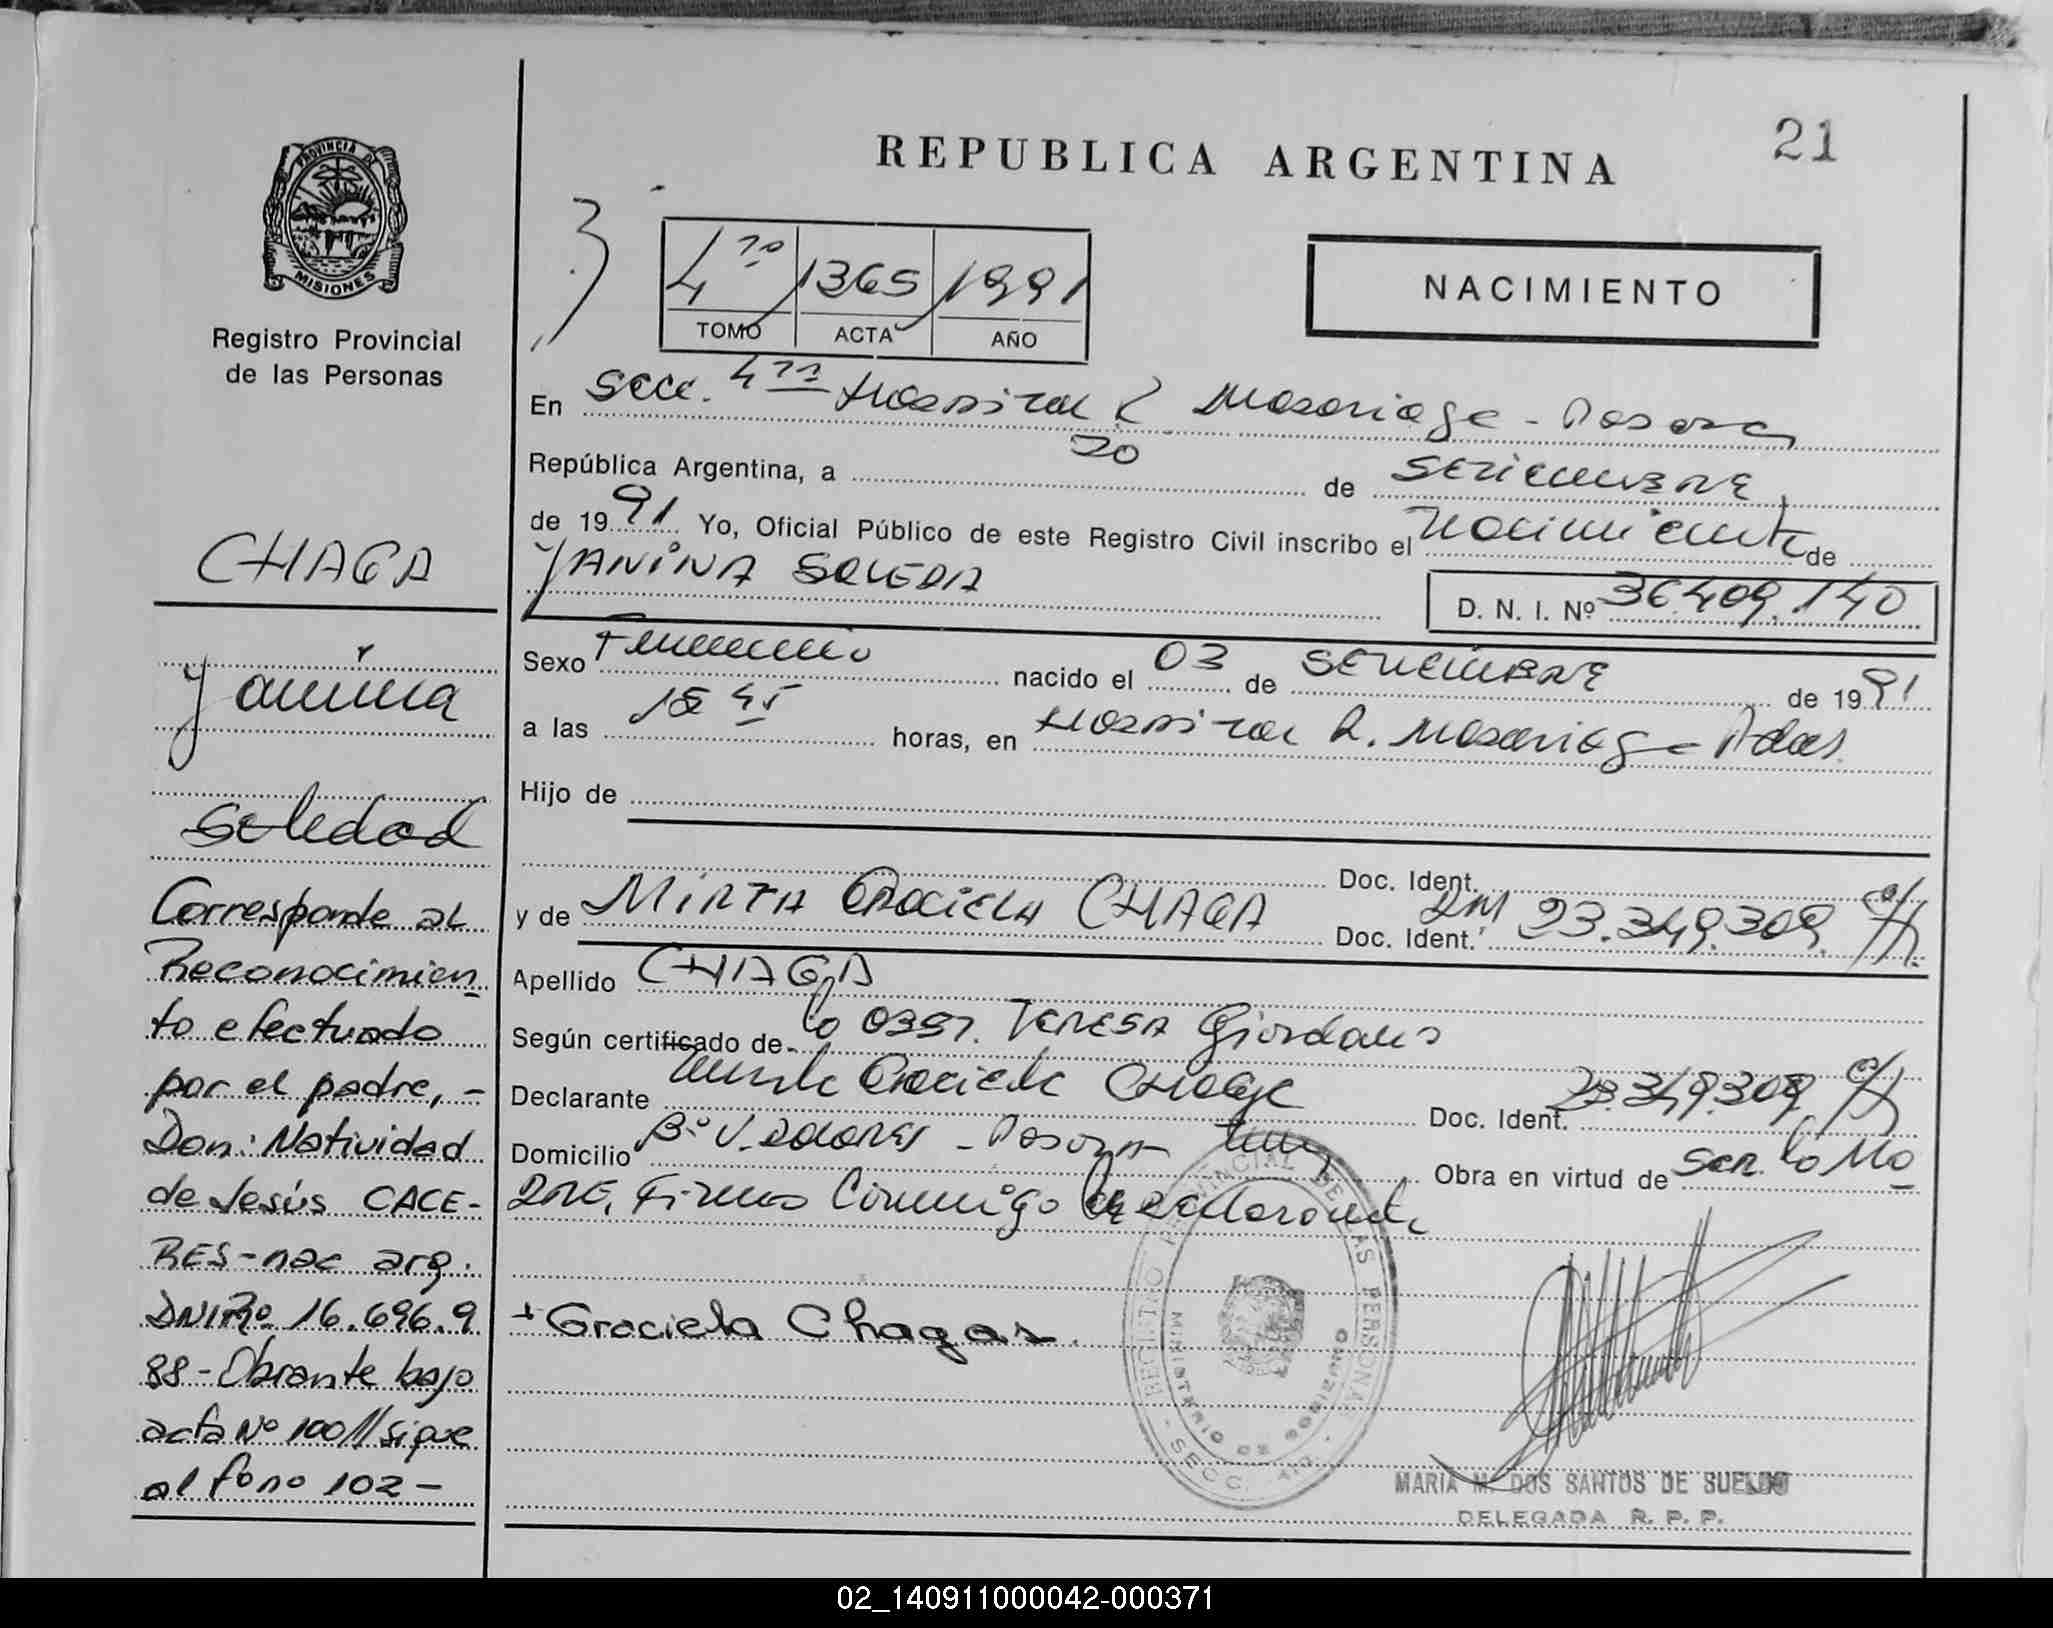 21
REPUBLICA ARGENTINA
PROVINCIA DE
MISIONES
Registro Provincial
de las Personas
4to 1365 1991
TOMO ACTA AÑO
NACIMIENTO
CHAGA
Yanina
Soledad
Corresponde al
Reconocimien
to efectuado
por el padre, -
Don: Natividad
de Jesús CACE-
RES - nac arg.
DNI Nº 16.696.9
88 - Obrante bajo
acta Nº 100 // sigue
al fono 102 -
En Secc. 4ta Hospital R Madariaga - Posadas
República Argentina, a 20 de SETIEMBRE
de 1991 Yo, Oficial Público de este Registro Civil inscribo el Nacimiento de
YANINA SOLEDA
D. N. I. Nº 36.409.140
Sexo Femenino nacido el 03 de SETIEMBRE de 1991
a las 18 45 horas, en Hospital R. Madariaga - Pdas.
Hijo de
Doc. Ident.
y de MIRTA GRACIELA CHAGA Doc. Ident. DNI 23.349.309.
Apellido CHAGA
Según certificado de TERESA Giordano
Declarante Mirta Graciela Chaga Doc. Ident. 23.349.309
Domicilio Bº V. DOLORES - Posadas Obra en virtud de Ser la Ma
DRE, Firma Conmigo la declarante
+ Graciela Chagas.
REGISTRO PROVINCIAL DE LAS PERSONAS
MINISTERIO DE GOBIERNO
- SECC. 4ta -
MARIA M. DOS SANTOS DE
DELEGADA R. P. P.
02_140911000042-000371